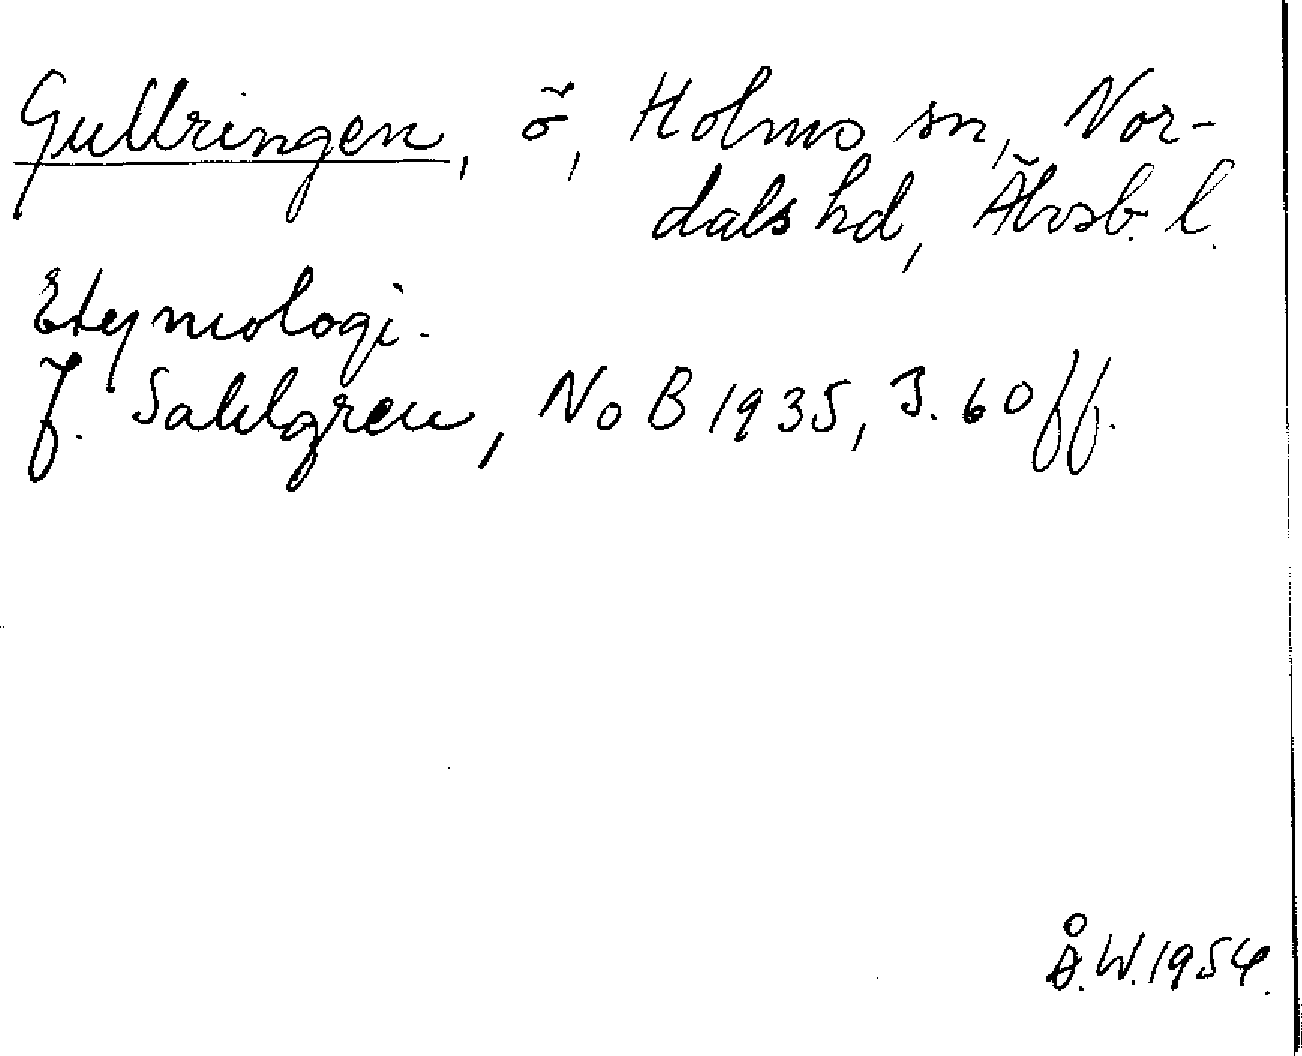 Gullringen, ö, Holms sn, Nor-
dals hd, Älvsb. l.
Etymologi.
J. Sahlgren, NoB 1935, S. 60 ff.
Å.W. 1954.